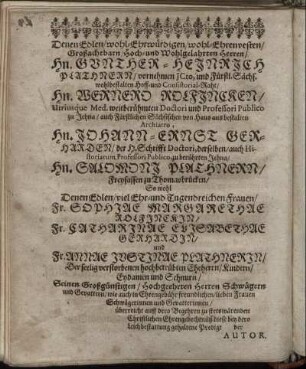 Denen Edlen/wohl-Ehrwürdigen/wohl-Ehrenvesten/
Großachtbarn/Hoch- und Wohlgelahrten Herren/
Hn. GVNTHER-HEINRICH
PLATHNERN/vornehmen JCto, und Fürstl. Sächs.
wohlbestalten Hoff- und Consistorial-Raht/
Hn. WERNERO ROLFINCKEN/
Utriusque Med. weitberühmten Doctori und Professori Publico
zu Jehna/auch Fürstlichen Sächsischer von Haus aus bestalten
Archiatro,
Hn. JOHANN-ERNST GER-
HARDEN/der H. Schrifft Doctori, derselben/auch Hi-
storiarum Professori Publico, zu berühmten Jehna/
Hn. SALOMONI PLATHNERN/
Freysassen zu Thomasbrücken/
So wohl
Denen Edlen/viel Ehr- und Tugendreichen Frauen/
Fr. SOPHIAE MARGARETHAE
ROLFINCKIN/
Fr. CATHARINAE ELISABETHAE
GERHARDIN/
und
Fr. ANNAE JVSTINAE PLATHNERIN/
Der selig verstorbenen hochbetrübten Eheherrn/Kindern/
Eydamen und Schnurn/
Seinen Großgünstigen/Hochgeehrten Herren Schwägern
und Gevattern/wie auch in Ehrengebühr freundlichen/lieben Frauen
Schwägerinnen und Gevatterinnen/
überreicht auff dero Begehren zu stets wärenden
Christlichen Ehrengedächtnüß diese bey dero
Leichbestattung gehaltene Predigt der
AUTOR.